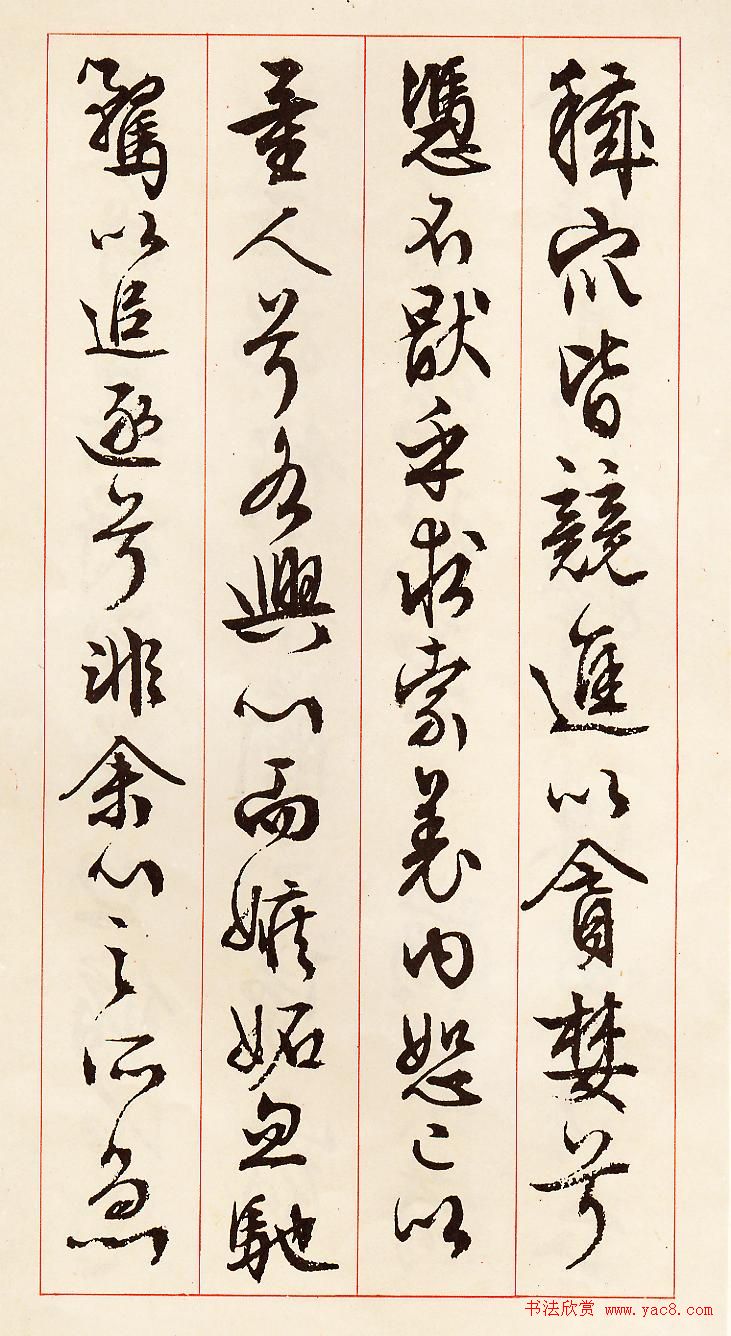 穢众皆競進以貪婪兮
憑不猒乎求索羌内恕己以
量人兮各興心而嫉妬忽馳
騖以追逐兮非余心之所急
书法欣赏 www.yac8.com